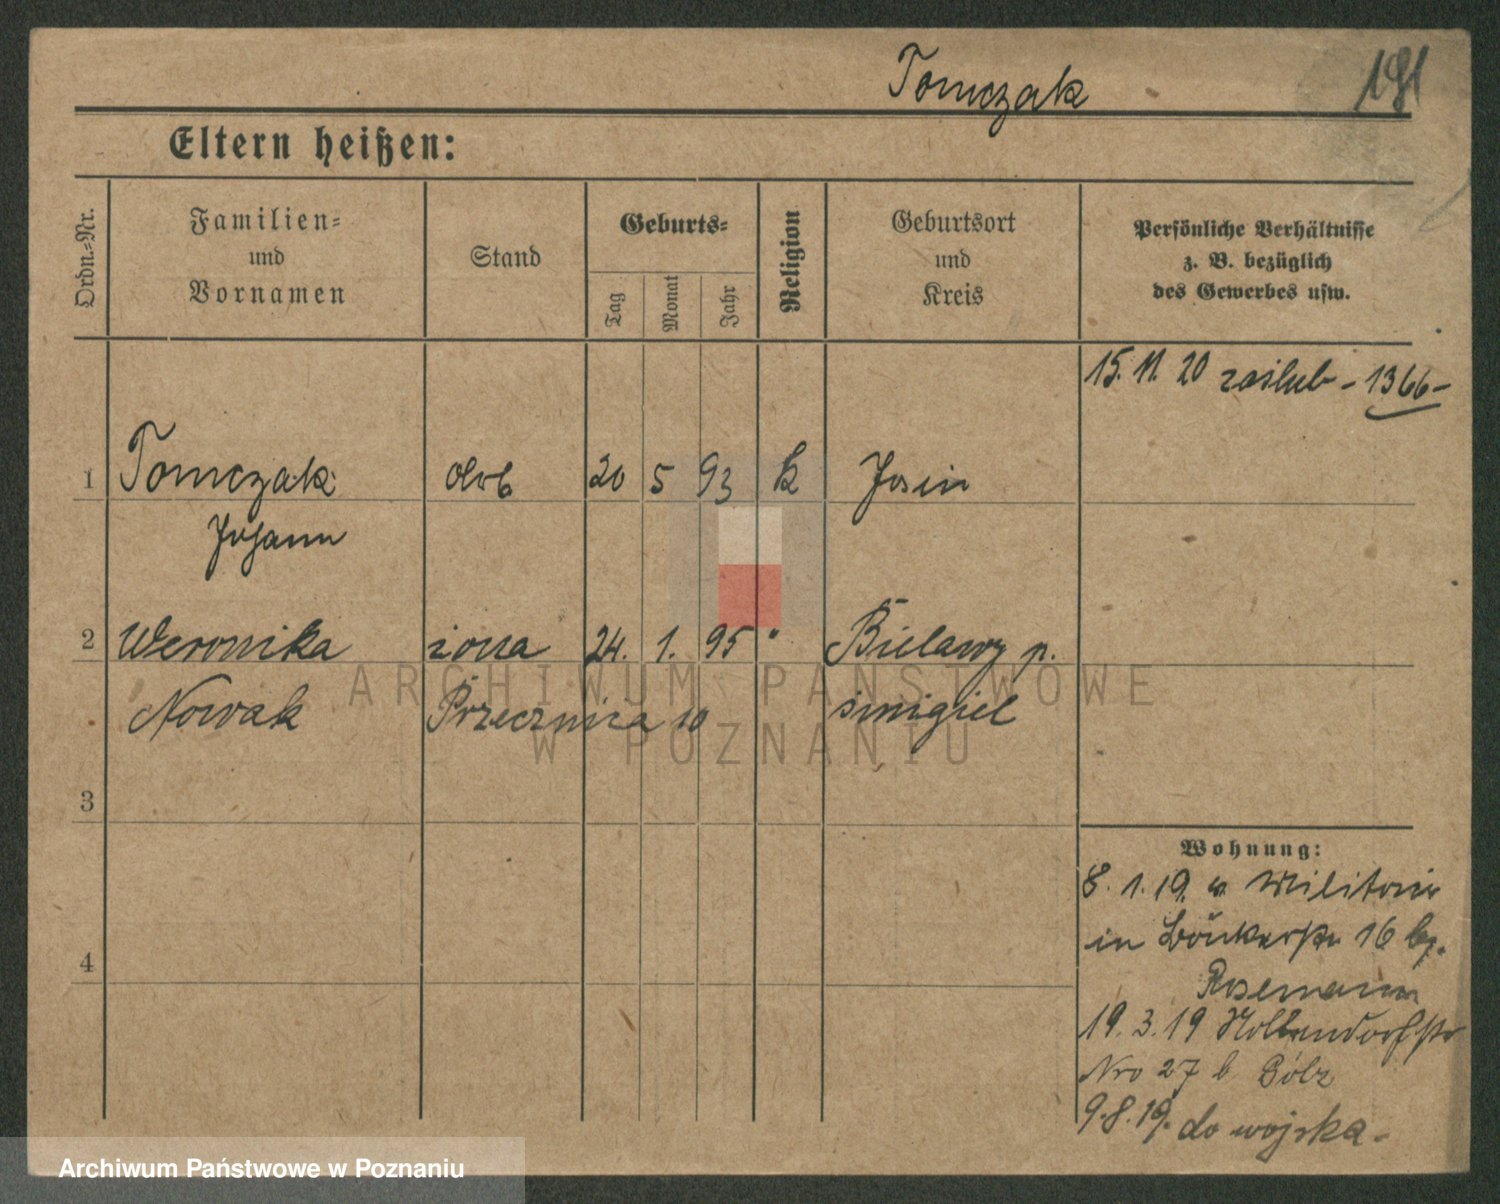 Tomczak
191
Eltern heißen:
Ordn.-Nr.
Familien-
und
Vornamen
Stand
Geburts-
Tag
Monat
Jahr
Religion
Geburtsort
und
Kreis
Persönliche Verhältnisse
z. B. bezüglich
des Gewerbes usw.
15. 11. 20 zaślub - 1366 -
1 Tomczak Arb 20 5 93 k Jasin
Johann
2 Weronika żona 24. 1. 95 " Bielawy p.
Nowak Przecznica 10 śmigiel
3
4
Wohnung:
8. 1. 19. v. Militair
in 16 b.
Rosemann
19. 3. 19 Hollendorfstr
Nro 27 b Golz
9. 8. 19. do wojska -
ARCHIWUM PAŃSTWOWE
W POZNANIU
Archiwum Państwowe w Poznaniu